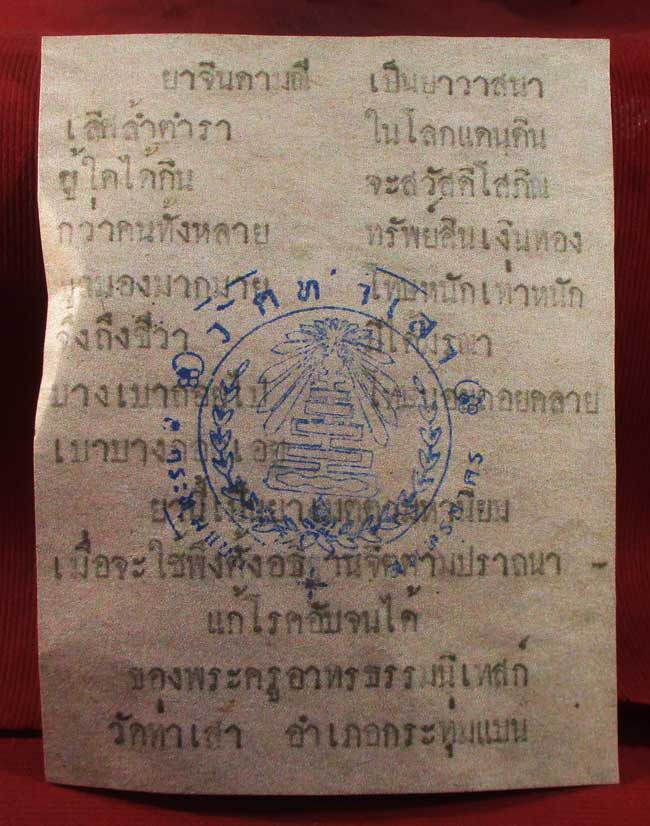 ยาจินดามณี เป็นยาวาสนา
เลิศล้ำตำรา ในโลกแดนดิน
ผู้ใดได้กิน จะสวัสดีโสภิณ
กว่าคนทั้งหลาย ทรัพย์สินเงินทอง
มากมาย โทษหนักเท่าหนัก
ถึงชีวา
บางเบาถอยไป ถอยคลาย
เบาบาง
ยานี้เป็นยาเมตตามหานิยม
เมื่อจะใช้พึงตั้งอธิฐานจิตตามปราถนา
แก้โรคอับจนได้
ของพระครูอาทรธรรมนิเทสก์
วัดท่าเสา อำเภอกระทุ่มแบน
วัดท่าเสา